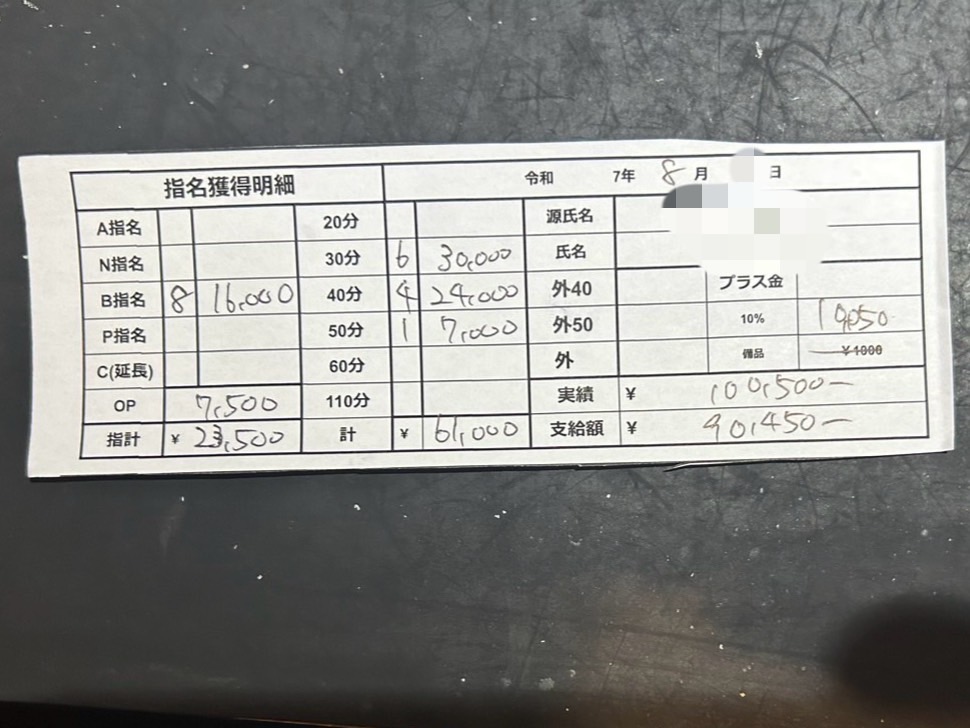 指名獲得明細 令和 7年 8月 日
A指名 20分 源氏名
N指名 30分 6 30,000 氏名
B指名 8 16,000 40分 4 24,000 外40 プラス金
P指名 50分 1 7,000 外50 10% 10,050
C(延長) 60分 外 備品 ¥1000
OP 7,500 110分 実績 ¥ 100,500ー
指計 ¥ 23,500 計 ¥ 61,000 支給額 ¥ 90,450ー